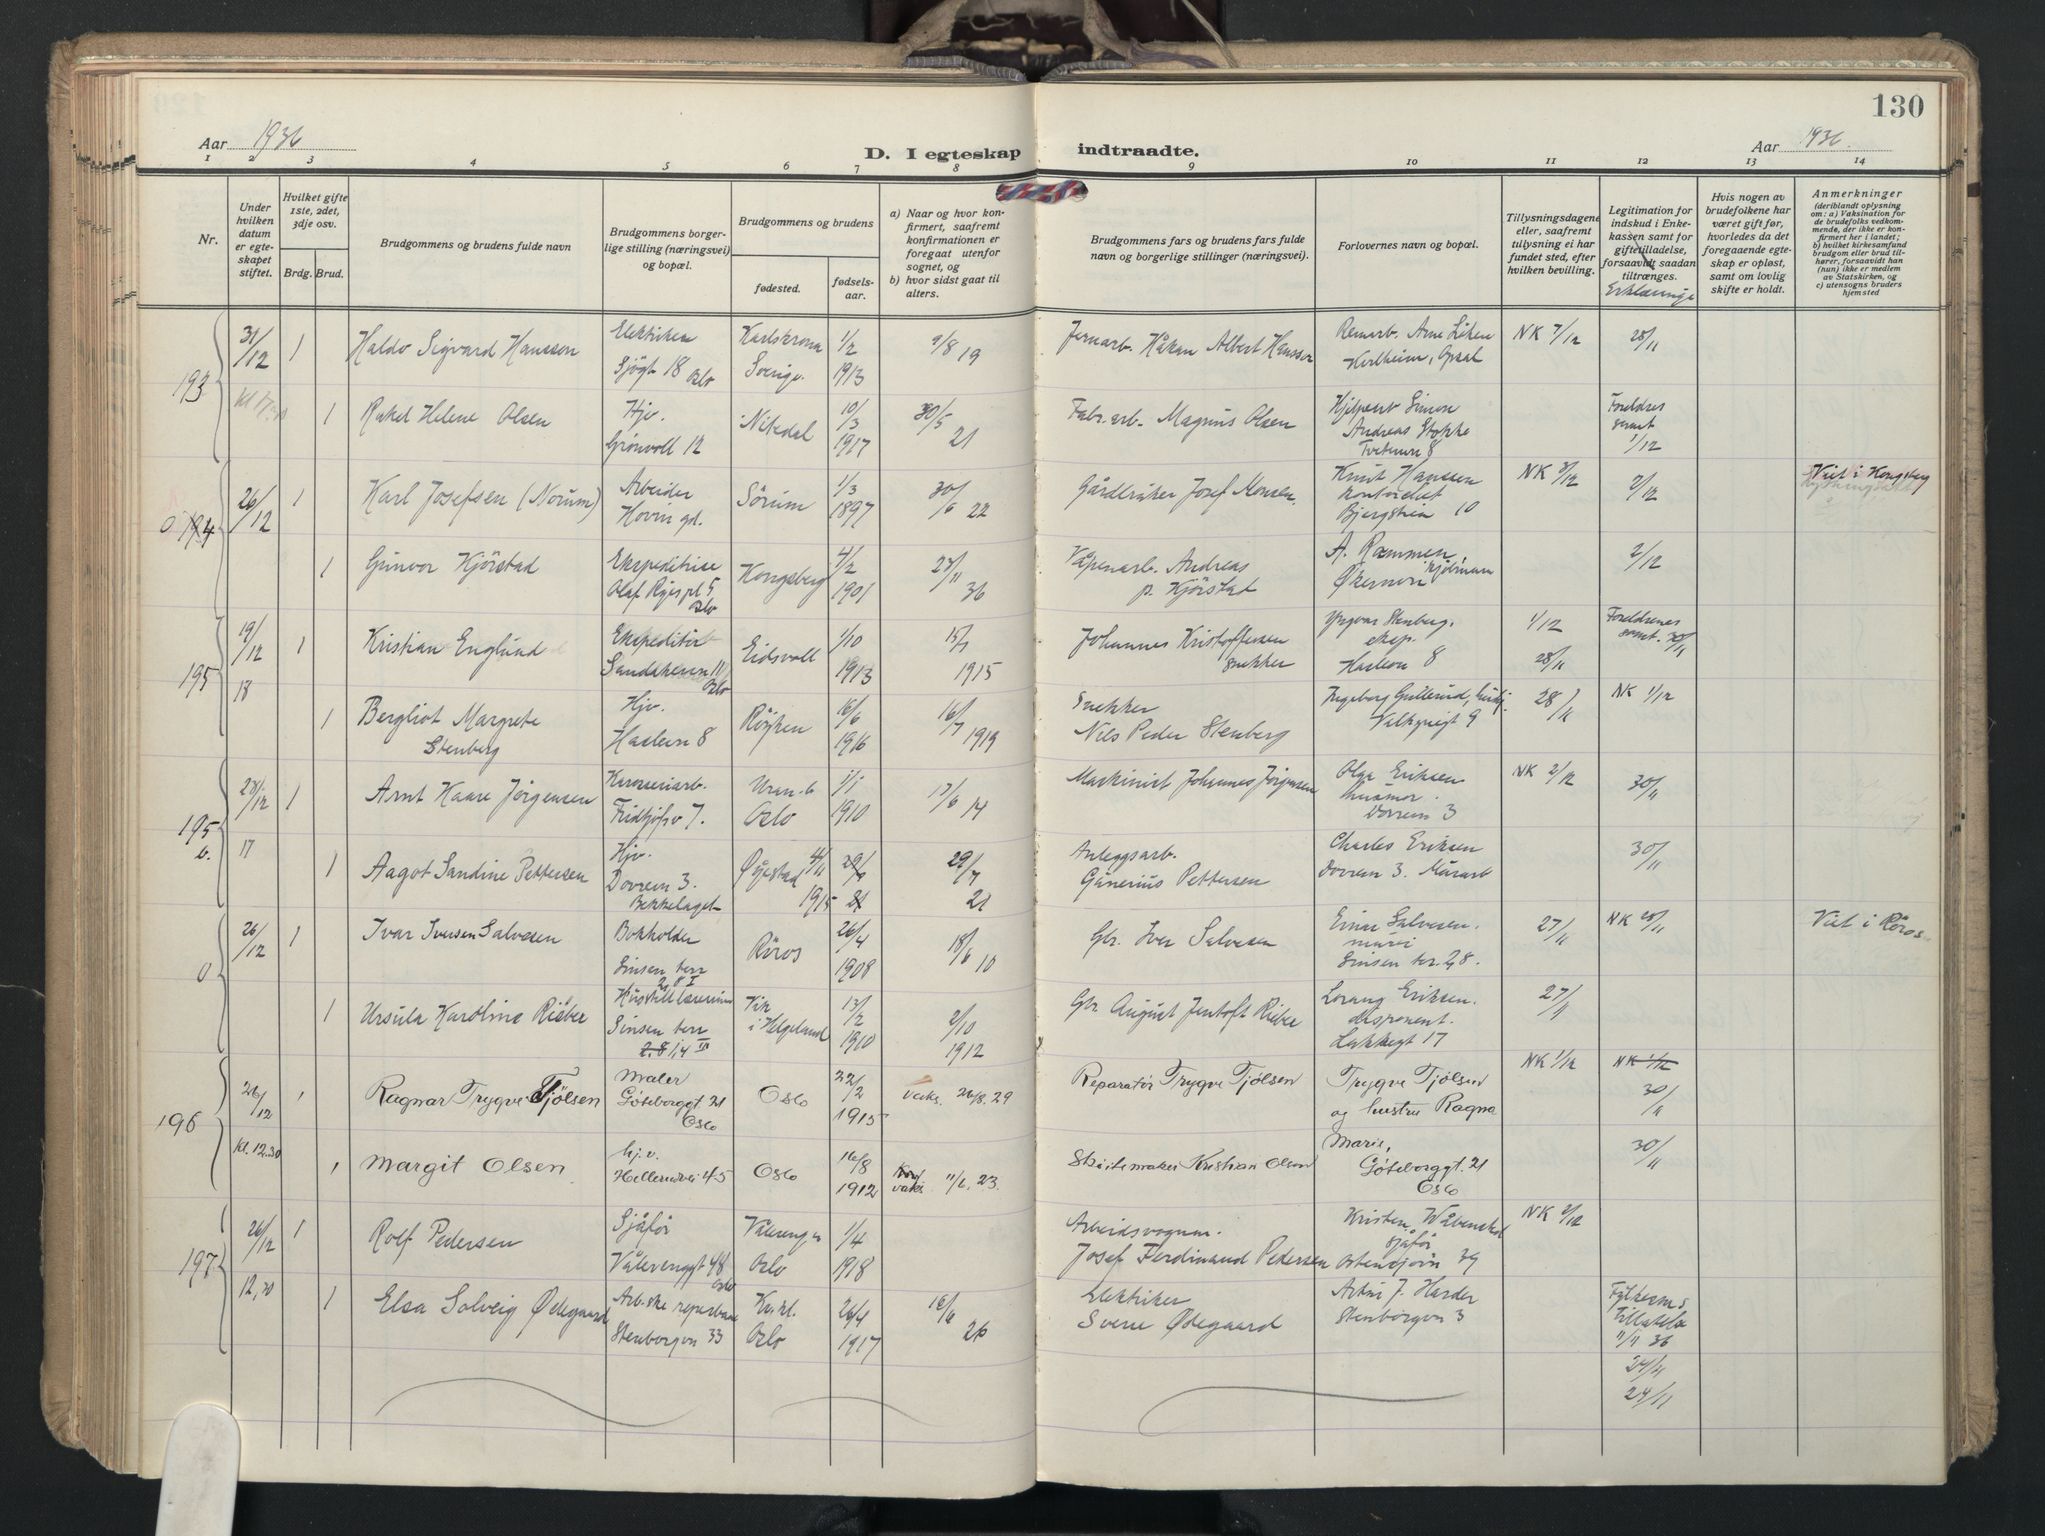 130
Aar 1936
D. I egteskap indtraadte.
Aar 1936.
1 2 3 4 5 6 7 8 9 10 11 12 13 14
Nr.
Under hvilken datum er egteskapet stiftet.
Hvilket gifte 1ste, 2det, 3dje osv.
Brdg. Brud.
Brudgommens og brudens fulde navn
Brudgommens borgerlige stilling (næringsvei) og bopæl.
Brudgommens og brudens
fødested.
fødselsaar.
a) Naar og hvor konfirmert, saafremt konfirmationen er foregaat utenfor sognet, og
b) hvor sidst gaat til alters.
Brudgommens fars og brudens fars fulde navn og borgerlige stillinger (næringsvei).
Forlovernes navn og bopæl.
Tillysningsdagene eller, saafremt tillysning ei har fundet sted, efter hvilken bevilling.
Legitimation for indskud i Enkekassen samt for giftetilladelse, forsaavidt saadan tiltrænges.
Erklæringe
Hvis nogen av brudefolkene har været gift før, hvorledes da det foregaaende egteskap er opløst, samt om lovlig skifte er holdt.
Anmerkninger
(deriblandt oplysning om: a) Vaksination for de brudefolks vedkommende, der ikke er konfirmert her i landet; b) hvilket kirkesamfund brudgom eller brud tilhører, forsaavidt han (hun) ikke er medlem av Statskirken, og c) utensogns bruders hjemsted
193
31/12 1 Haldo Sigvard Hansson
Sjögt 18 Oslo
Karlskrona Sverige.
1/2 1913
9/8 19
Jernarb. Håkan Albert Hansson
NK 7/12
28/11
1 Rakel Helene Olsen
Hjv.
Grönvoll 12
Nitedal
10/3 1917
30/5 21
Fabr.arb. Magnus Olsen
Andreas Stokke
Foreldres samt 1/12
0 194
26/12 1 Karl Josefsen (Norum)
Arbeider
Hovin gd.
Sörum
1/3 1897
30/6 22
Gårdbruker Josef Monsen
Knut Hanssen
kontorchef
10
NK 3/12
2/12
Viet i Kongsberg
1 Gunvor Kjörstad
Ekspeditrise
Olaf Ryes pl 5 Oslo
Kongsberg
4/2 1901
27/11 36
Våpenarb. Andreas
P. Kjörstad
A. Rammen,
Økernvei
2/12
195
19/12 1 Kristian Englund
18
Ekspeditör
Sandakerven 11 Oslo
Eidsvoll
1/10 1913
15/7 1915
Johannes Kristoffersen
snekker
Yngvar Stenberg,
eksp.
Hasleun 8
1/12
28/11
Foreldrenes samt. 30/11
1 Bergliot Margrete
Stenberg
Hjv.
Hasleun 8
Röyken
16/6 1916
16/7 1919
Snekker
Nils Peder Stenberg
Ingeborg Gullerud,
Valkyriegt 9
28/11
NK 1/12
195 b.
23/12 1 Arnt Kaare Jörgensen
17
Karosseriarb.
Fridtjofsv 7.
Uran.b
Oslo
1/1 1910
17/6 14
Maskinist Johannes Jörgensen
Olga Eriksen
husmor.
Dovreun 3
NK 2/12
30/11
1 Aagot Sandine Pettersen
Hjv.
Dovreun 3.
Bekkelaget
Öyestad
4/11 1915
29/7 21
Anleggsarb.
Gunerius Pettersen
Charles Eriksen
Dovreun 3. Murarb
30/11
0
26/12 1 Ivar Iversen Salvesen
Bokholder
Sinsen terr
2, 8 I
Röros
26/4 1908
18/6 10
Gbr. Iver Salvesen
Einar Salvesen.
Sinsen ter. 2, 8.
27/11
NK 28/11
Viet i Röros
1 Ursula Karoline Rieber
Husstellærerinne
Sinsen terr
1,4 III
Vik
i Helgeland
13/2 1910
2/10 1912
Gbr. August Jentoft Rieber
Lorang Eriksen.
disponent.
Lakkegt 17
27/11
196
26/12 1 Ragnar Trygve Tjölsen
Kl. 12.30
Maler
Göteborggt 21
Oslo
Oslo
22/2 1915
Vaks. 20/8. 29
Reparatör Trygve Tjölsen
Trygve Tjölsen
og hustru Ragna
NK 1/12
NK 1/12
30/11
1 Margit Olsen
hj.v.
Hellerudvei 45
Oslo
16/8 1912
vaks. 11/6. 23.
Sköitemaker Kristian Olsen
Marie,
Göteborggt. 21
Oslo
30/11
197
26/12 1 Rolf Pedersen
12,30
Sjåför
Vålerenggt 48 Oslo
Vålerenga
Oslo
1/4 1918
Arbeidsvognm.
Josef Ferdinand Pedersen
sjåför
Östensjövn 29
NK 2/12
1 Elsa Solveig Ødegaard
Stenborgvn 33
Kv.kl.
Oslo
26/4 1917
16/6 26
Elektriker
Sverre Ødegaard
Artur J. Harder
Stenborgvn 3
Tillatelse
11/11 36
24/11
24/11